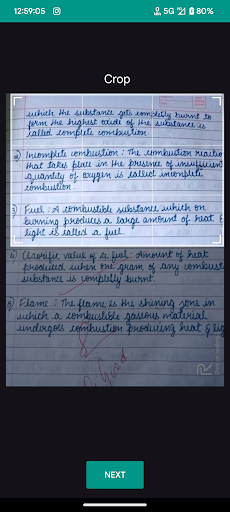 12:59:05
5G
80%
Crop
which the substance gets completly burnt to
form the highest oxide of the substance is
called complete combustion.
2) Incomplete combustion : The combustion reactio
that takes place in the presence of insufficient
quantity of oxygen is called incomplete
combustion.
3) Fuel : A combustible substance which on
burning produces a large amount of heat &
light is called a fuel.
4) Claorific value of a fuel: Amount of heat
produced when one gram of any combust
substance is completly burnt.
5) Flame : The flame is the shining zone in
which a combustible gaseous material
undergoes combustion producing heat & lig
Good
NEXT